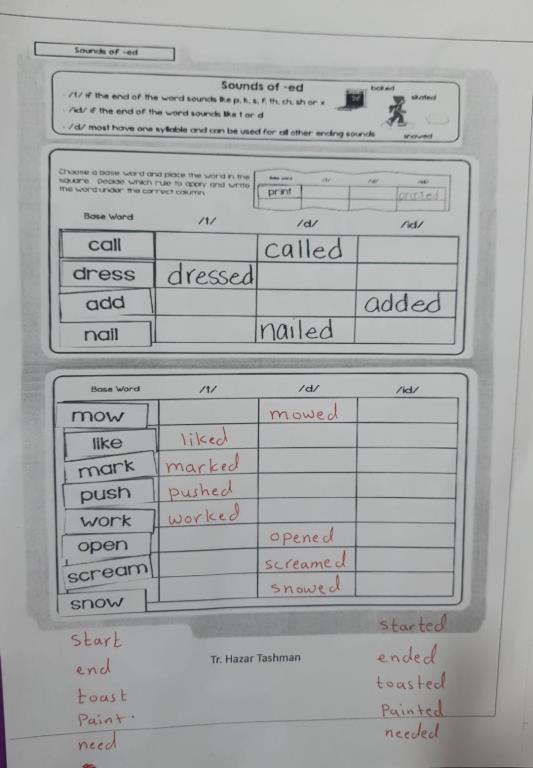 Sounds of -ed
Sounds of -ed
· /t/ if the end of the word sounds like p, k, s, f, th, ch, sh or x
· /id/ if the end of the word sounds like t or d
· /d/ most have one syllable and can be used for all other ending sounds
baked
skated
snowed
Choose a base word and place the word in the
square. Decide which rule to apply and write
the word under the correct column.
print printed
Base Word /t/ /d/ /id/
call called
dress dressed
add added
nail nailed
Base Word /t/ /d/ /id/
mow mowed
like liked
mark marked
push pushed
work worked
open opened
scream screamed
snow snowed
start started
Tr. Hazar Tashman
end ended
toast toasted
Paint. Painted
need needed